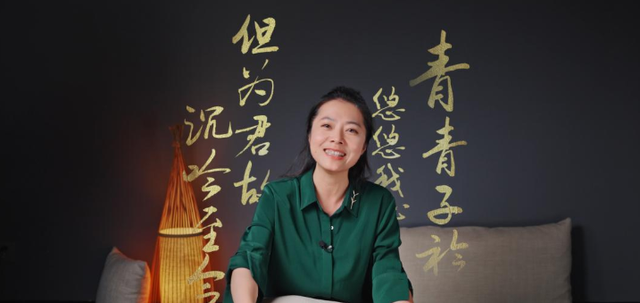 青青子衿
悠悠我心
但为君故
沉吟至今